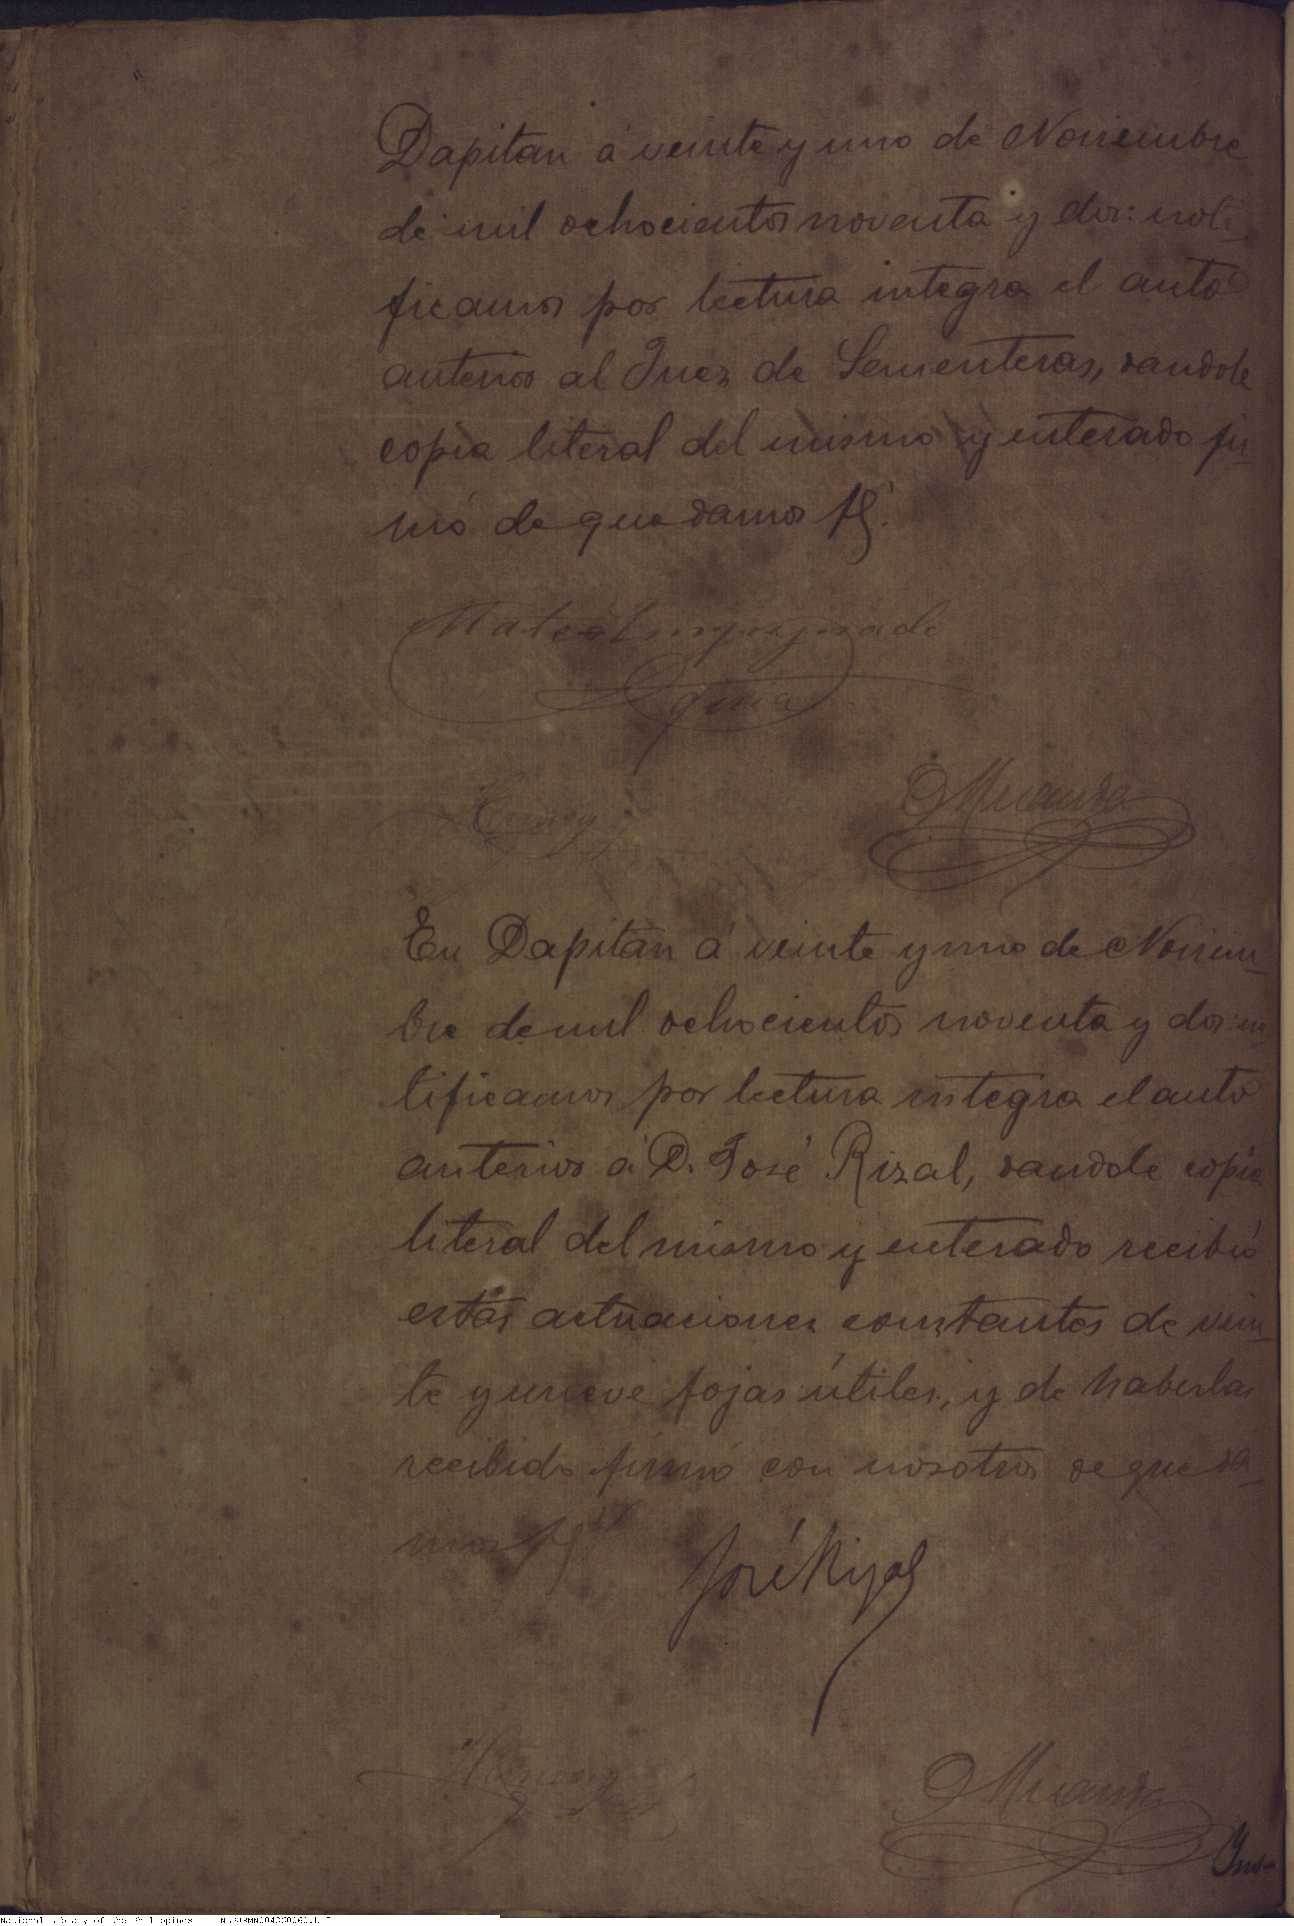 Dapitan á veinte y uno de Noviembre
de mil ochocientos noventa y dos: noti-
ficamos por lectura integra el auto
anterior al Juez de Sementeras, dandole
copia literal del mismo y enterado fir-
mó de que damos fé.
Mateo
Miranda
En Dapitan á veinte y uno de Noviem-
bre de mil ochocientos noventa y dos: no-
tificamos por lectura integra el auto
anterior á D. José Rizal, dandole copia
literal del mismo y enterado recibió
estas actuaciones constantes de vein-
te y nueve fojas útiles, y de haberlas
recibido firmó con nosotros de que da-
mos fé
José Rizal
Miranda
National Library of the Philippines